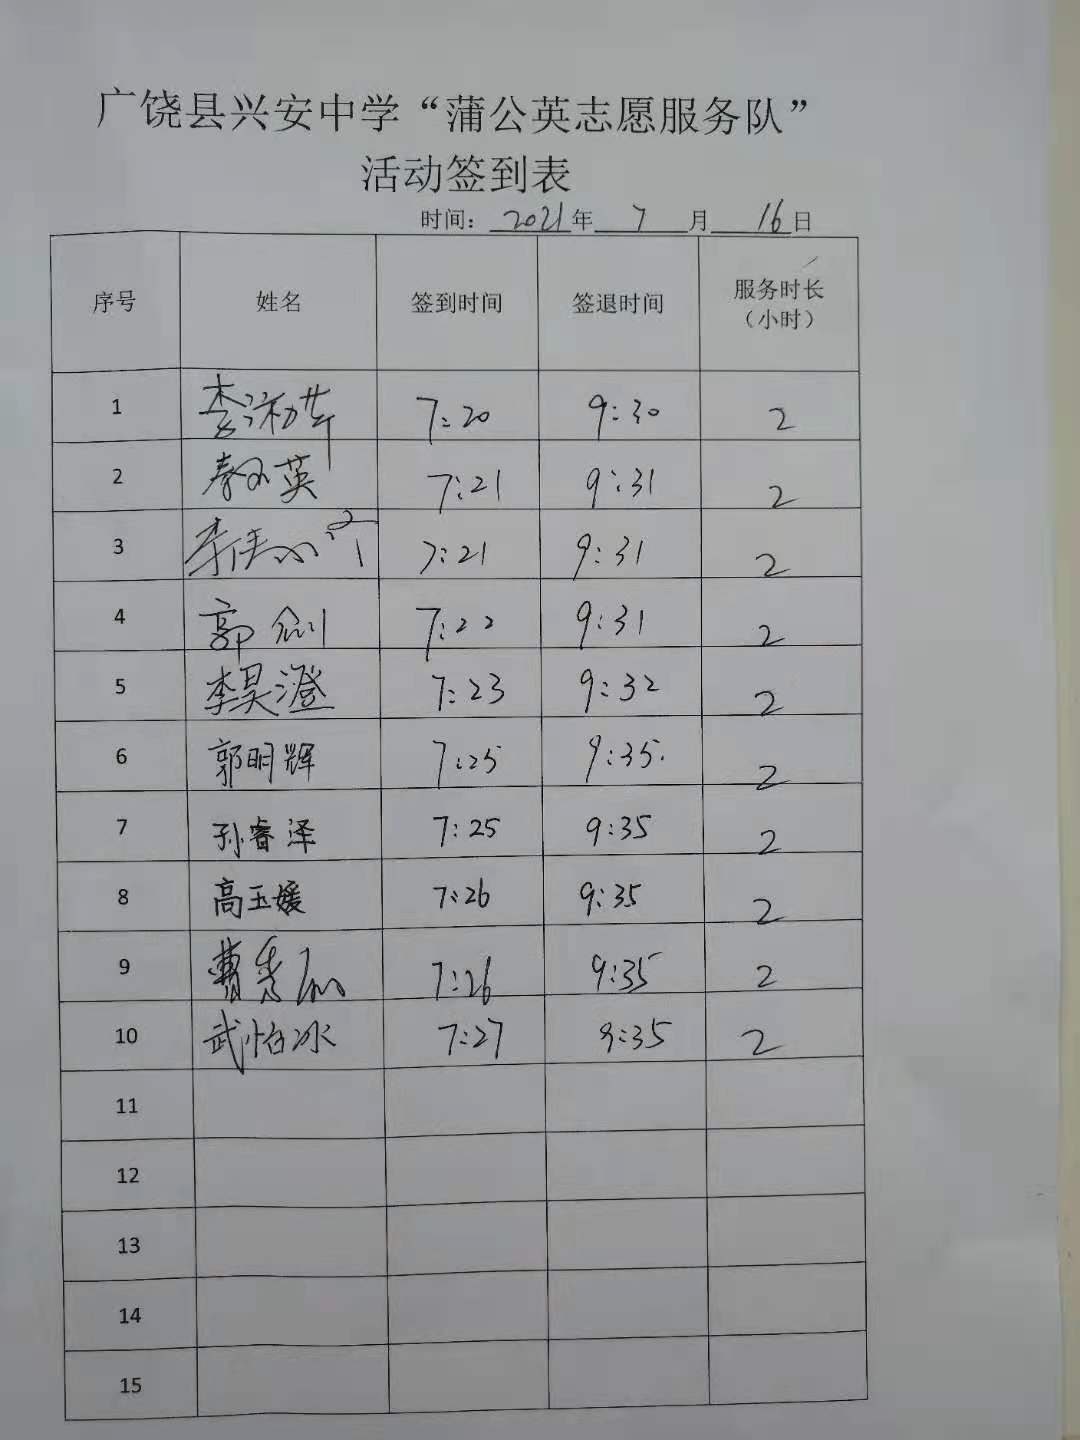 广饶县兴安中学“蒲公英志愿服务队”
活动签到表
时间：2021年 7 月 16日
序号 姓名 签到时间 签退时间 服务时长（小时）
1 李 7:20 9:30 2
2 秦 英 7:21 9:31 2
3 李 7:21 9:31 2
4 郭 7:22 9:31 2
5 李昊澄 7:23 9:32 2
6 郭明辉 7:25 9:35. 2
7 孙睿泽 7:25 9:35 2
8 高玉媛 7:26 9:35 2
9 曹秀 7:26 9:35 2
10 武怡冰 7:27 9:35 2
11
12
13
14
15